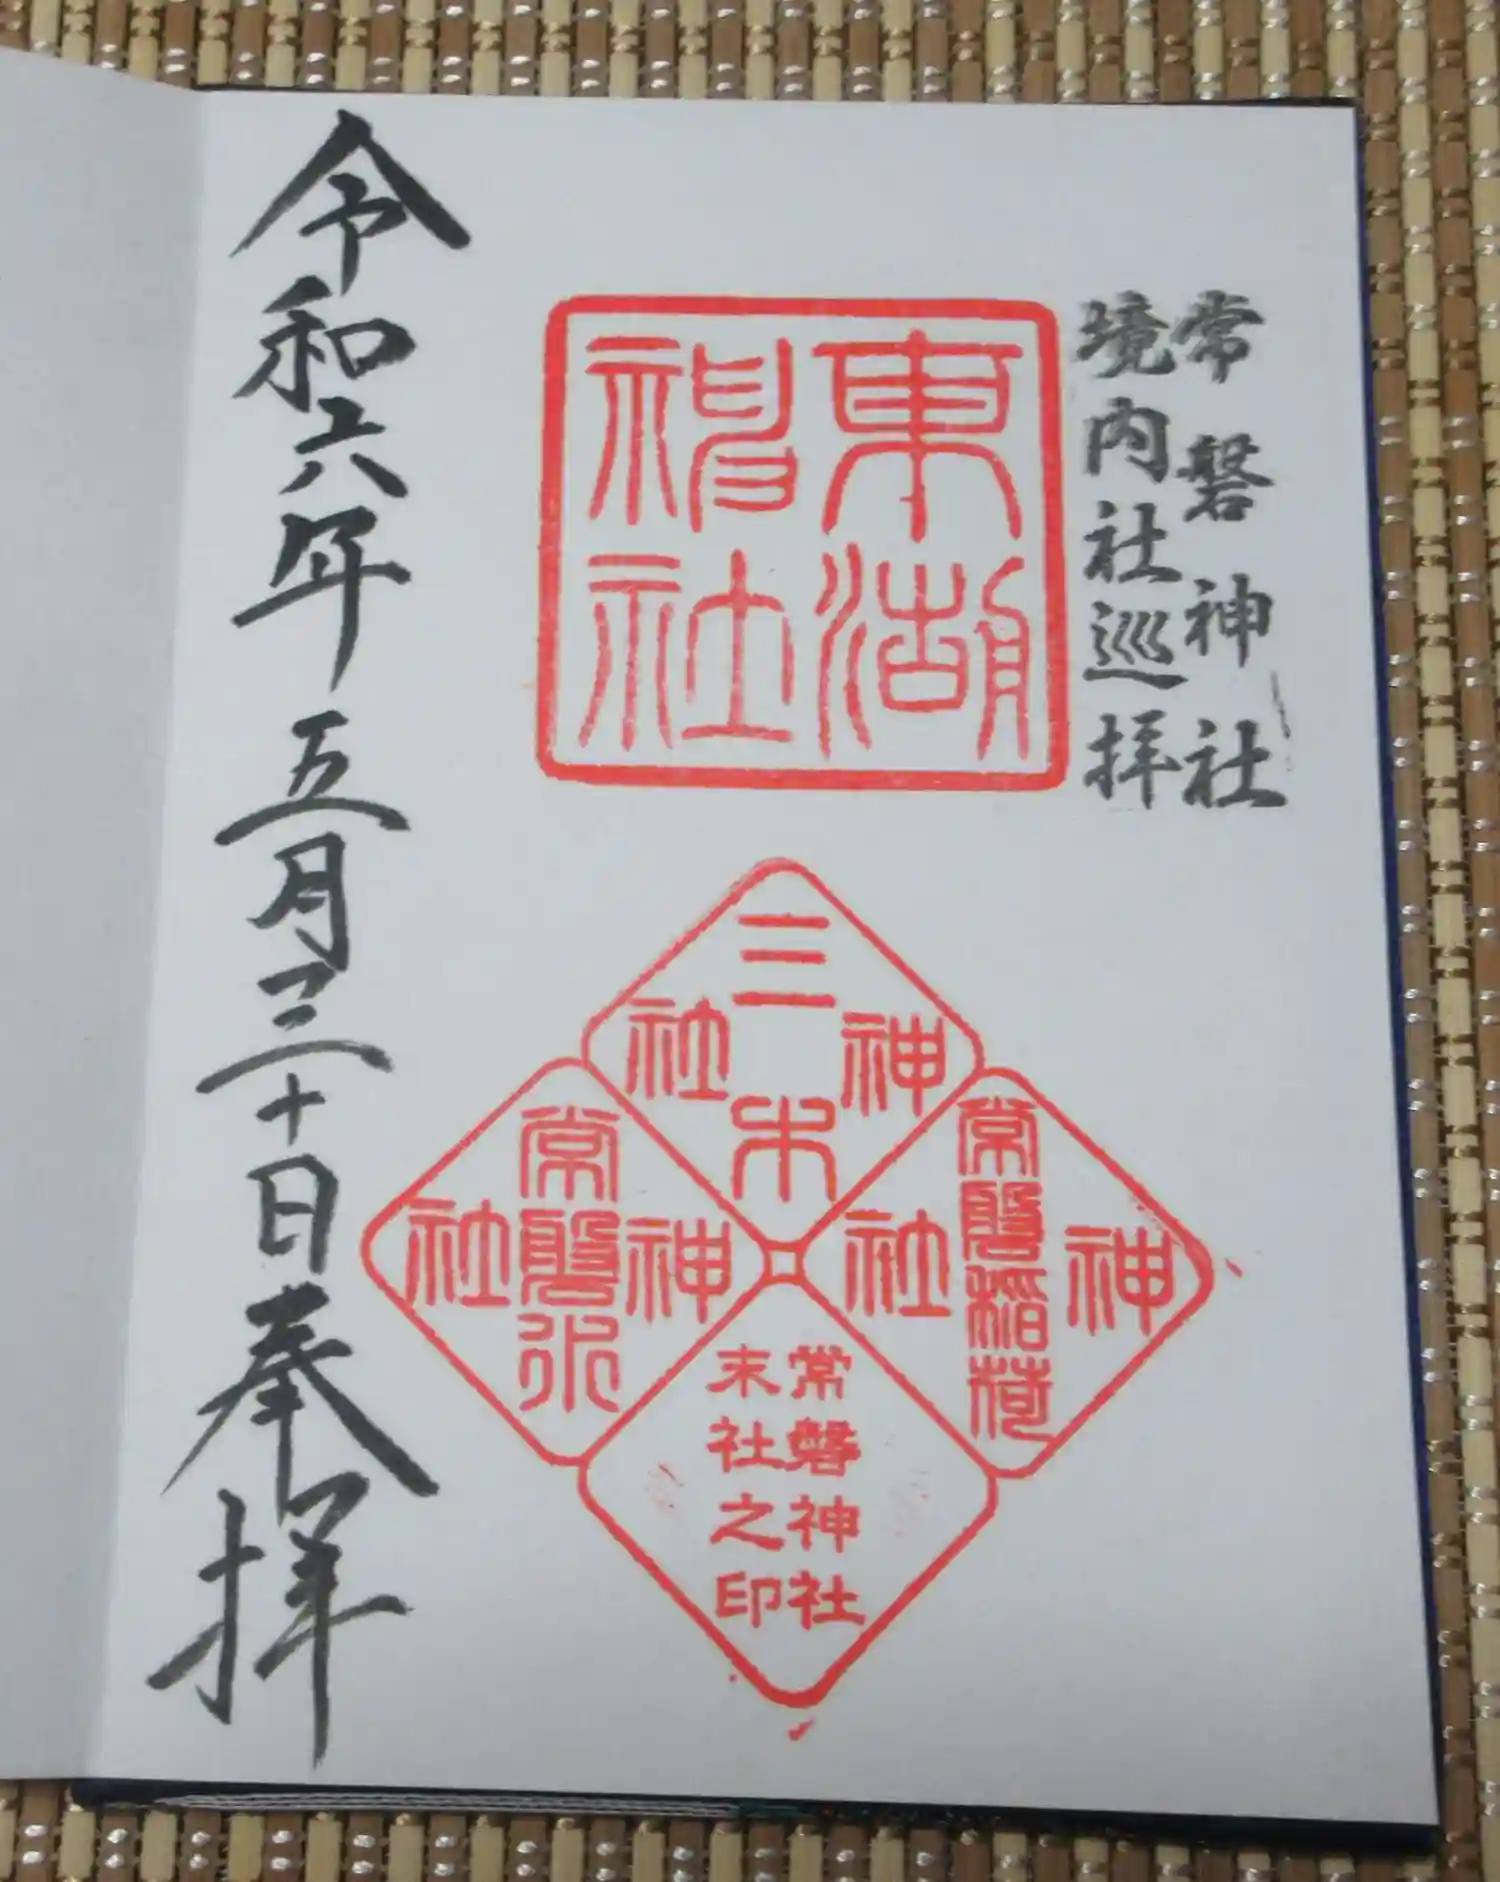 常磐神社
境内社巡拝
東湖
神社
三木
神社
常磐稲荷
神社
常磐水
神社
常磐神社
末社之印
令和六年五月三十日奉拝